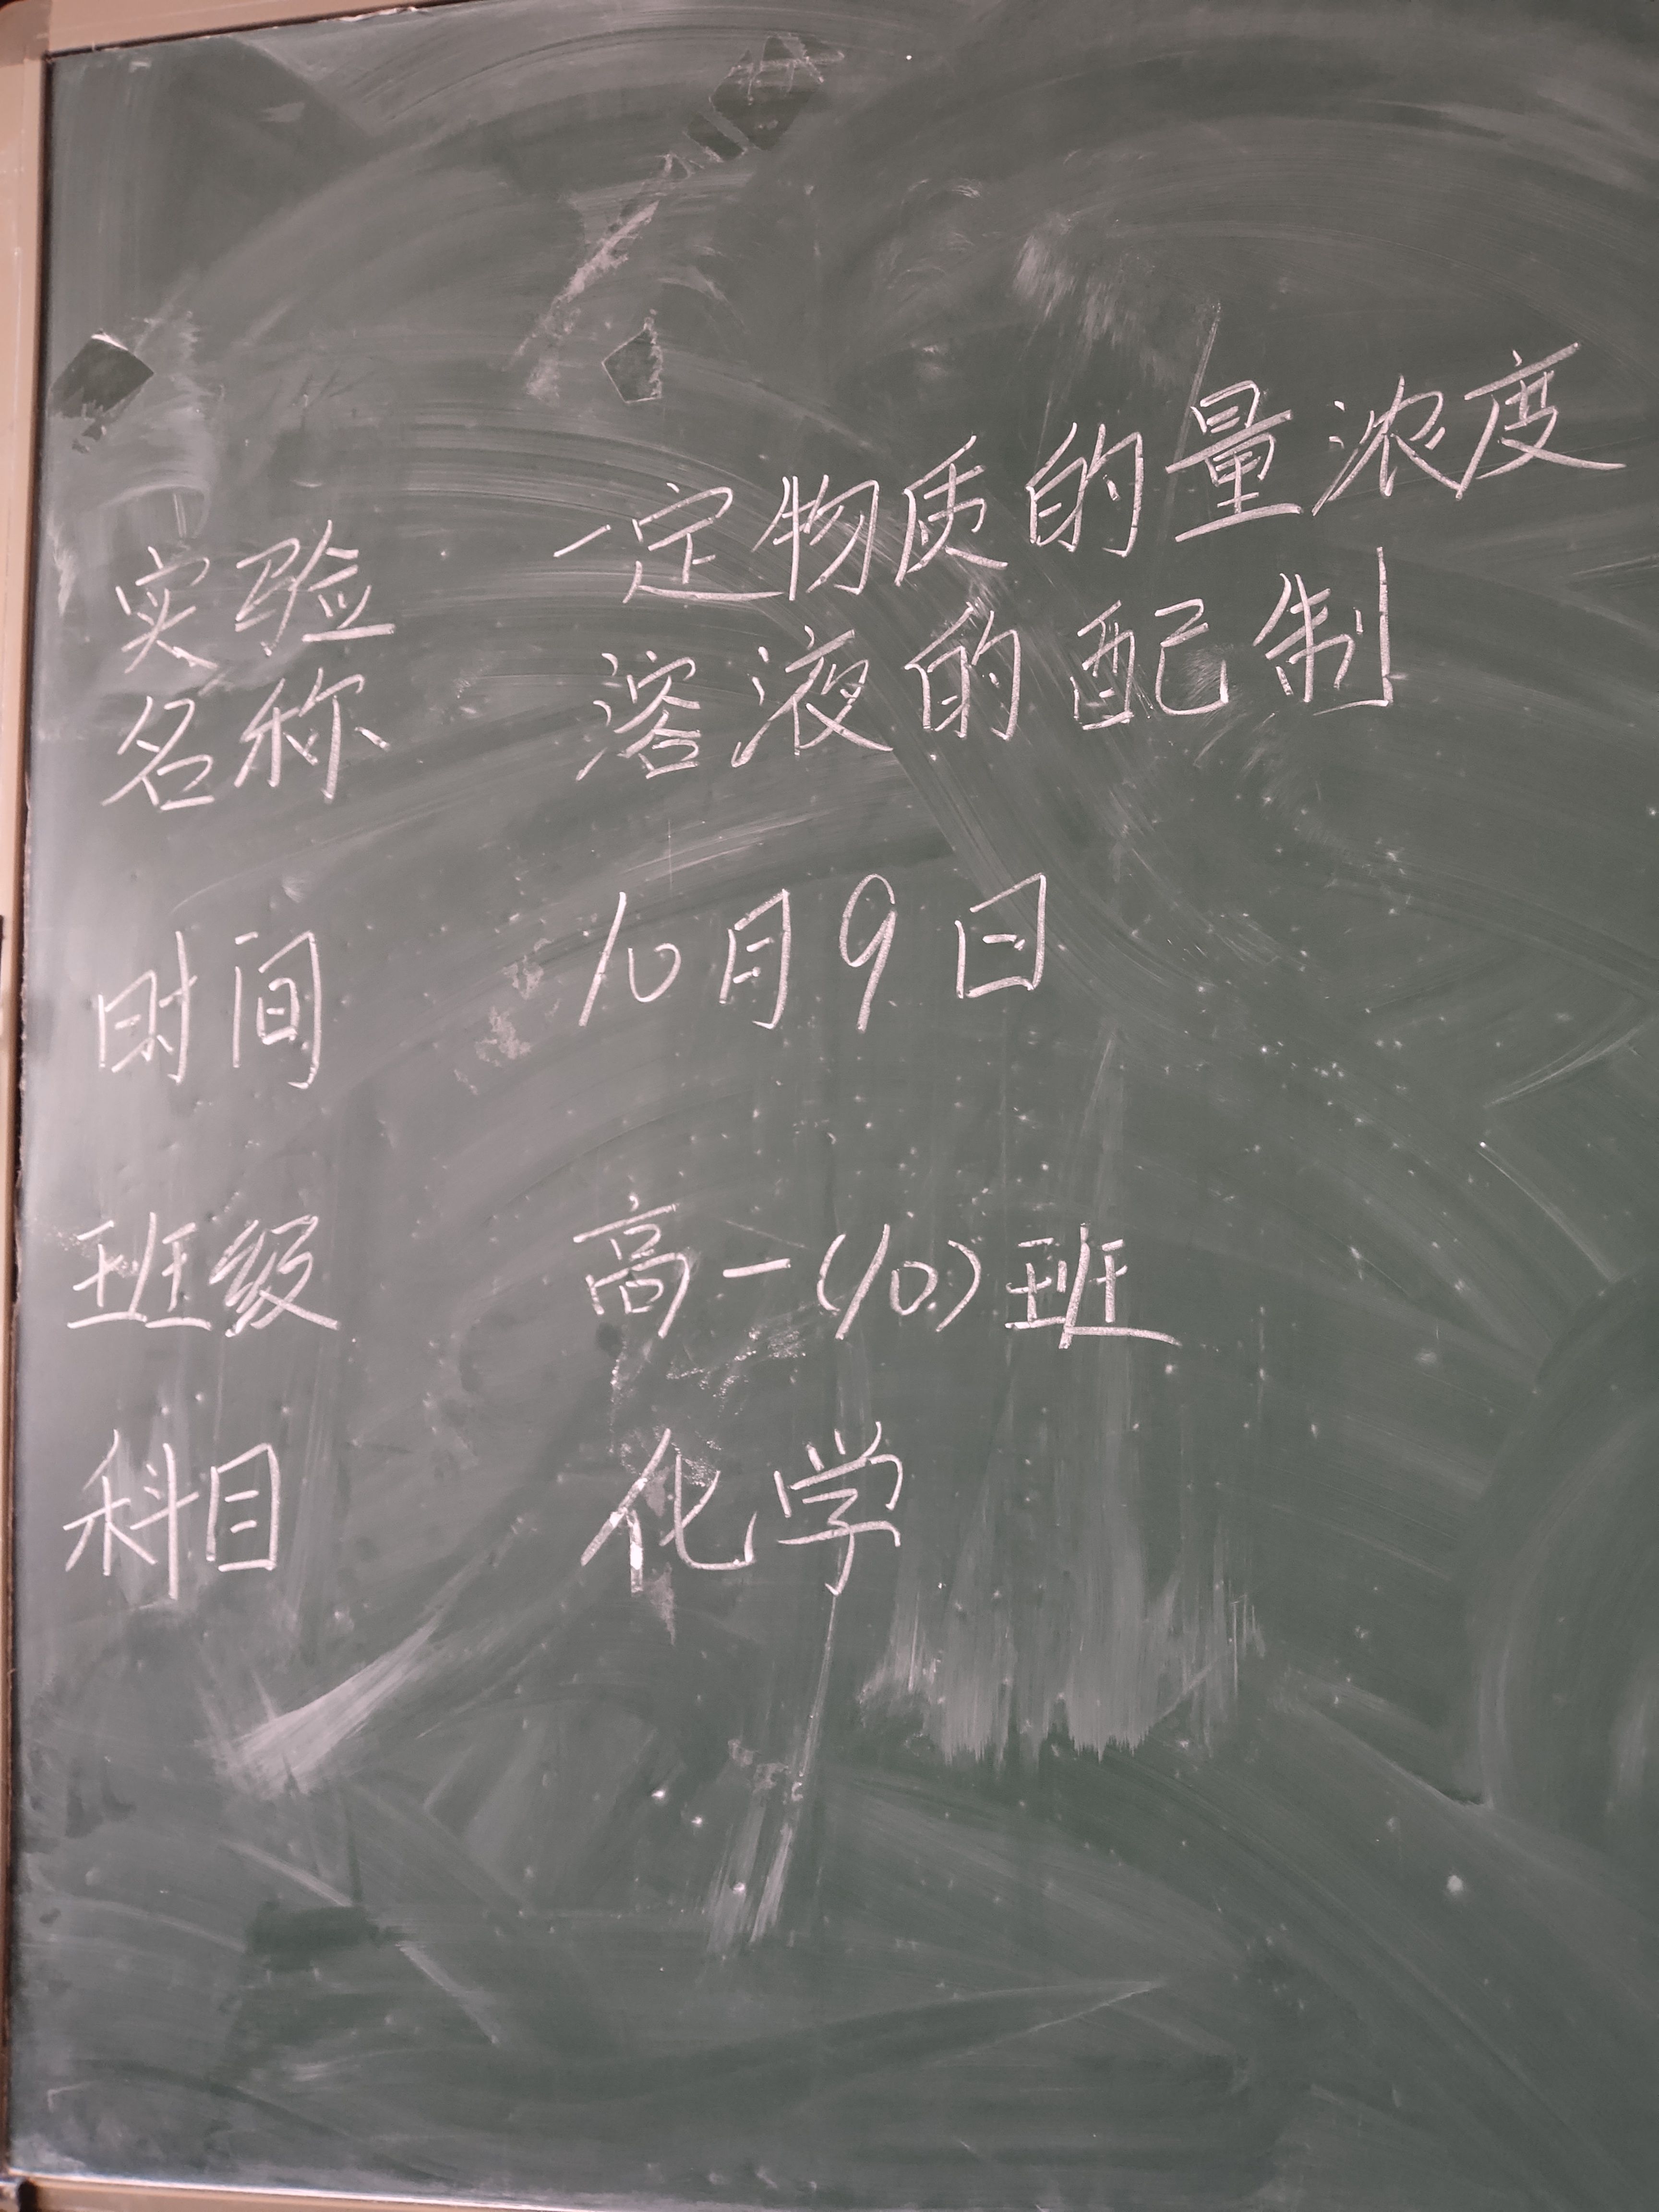 实验 一定物质的量浓度
名称 溶液的配制
时间 10月9日
班级 高一(10)班
科目 化学